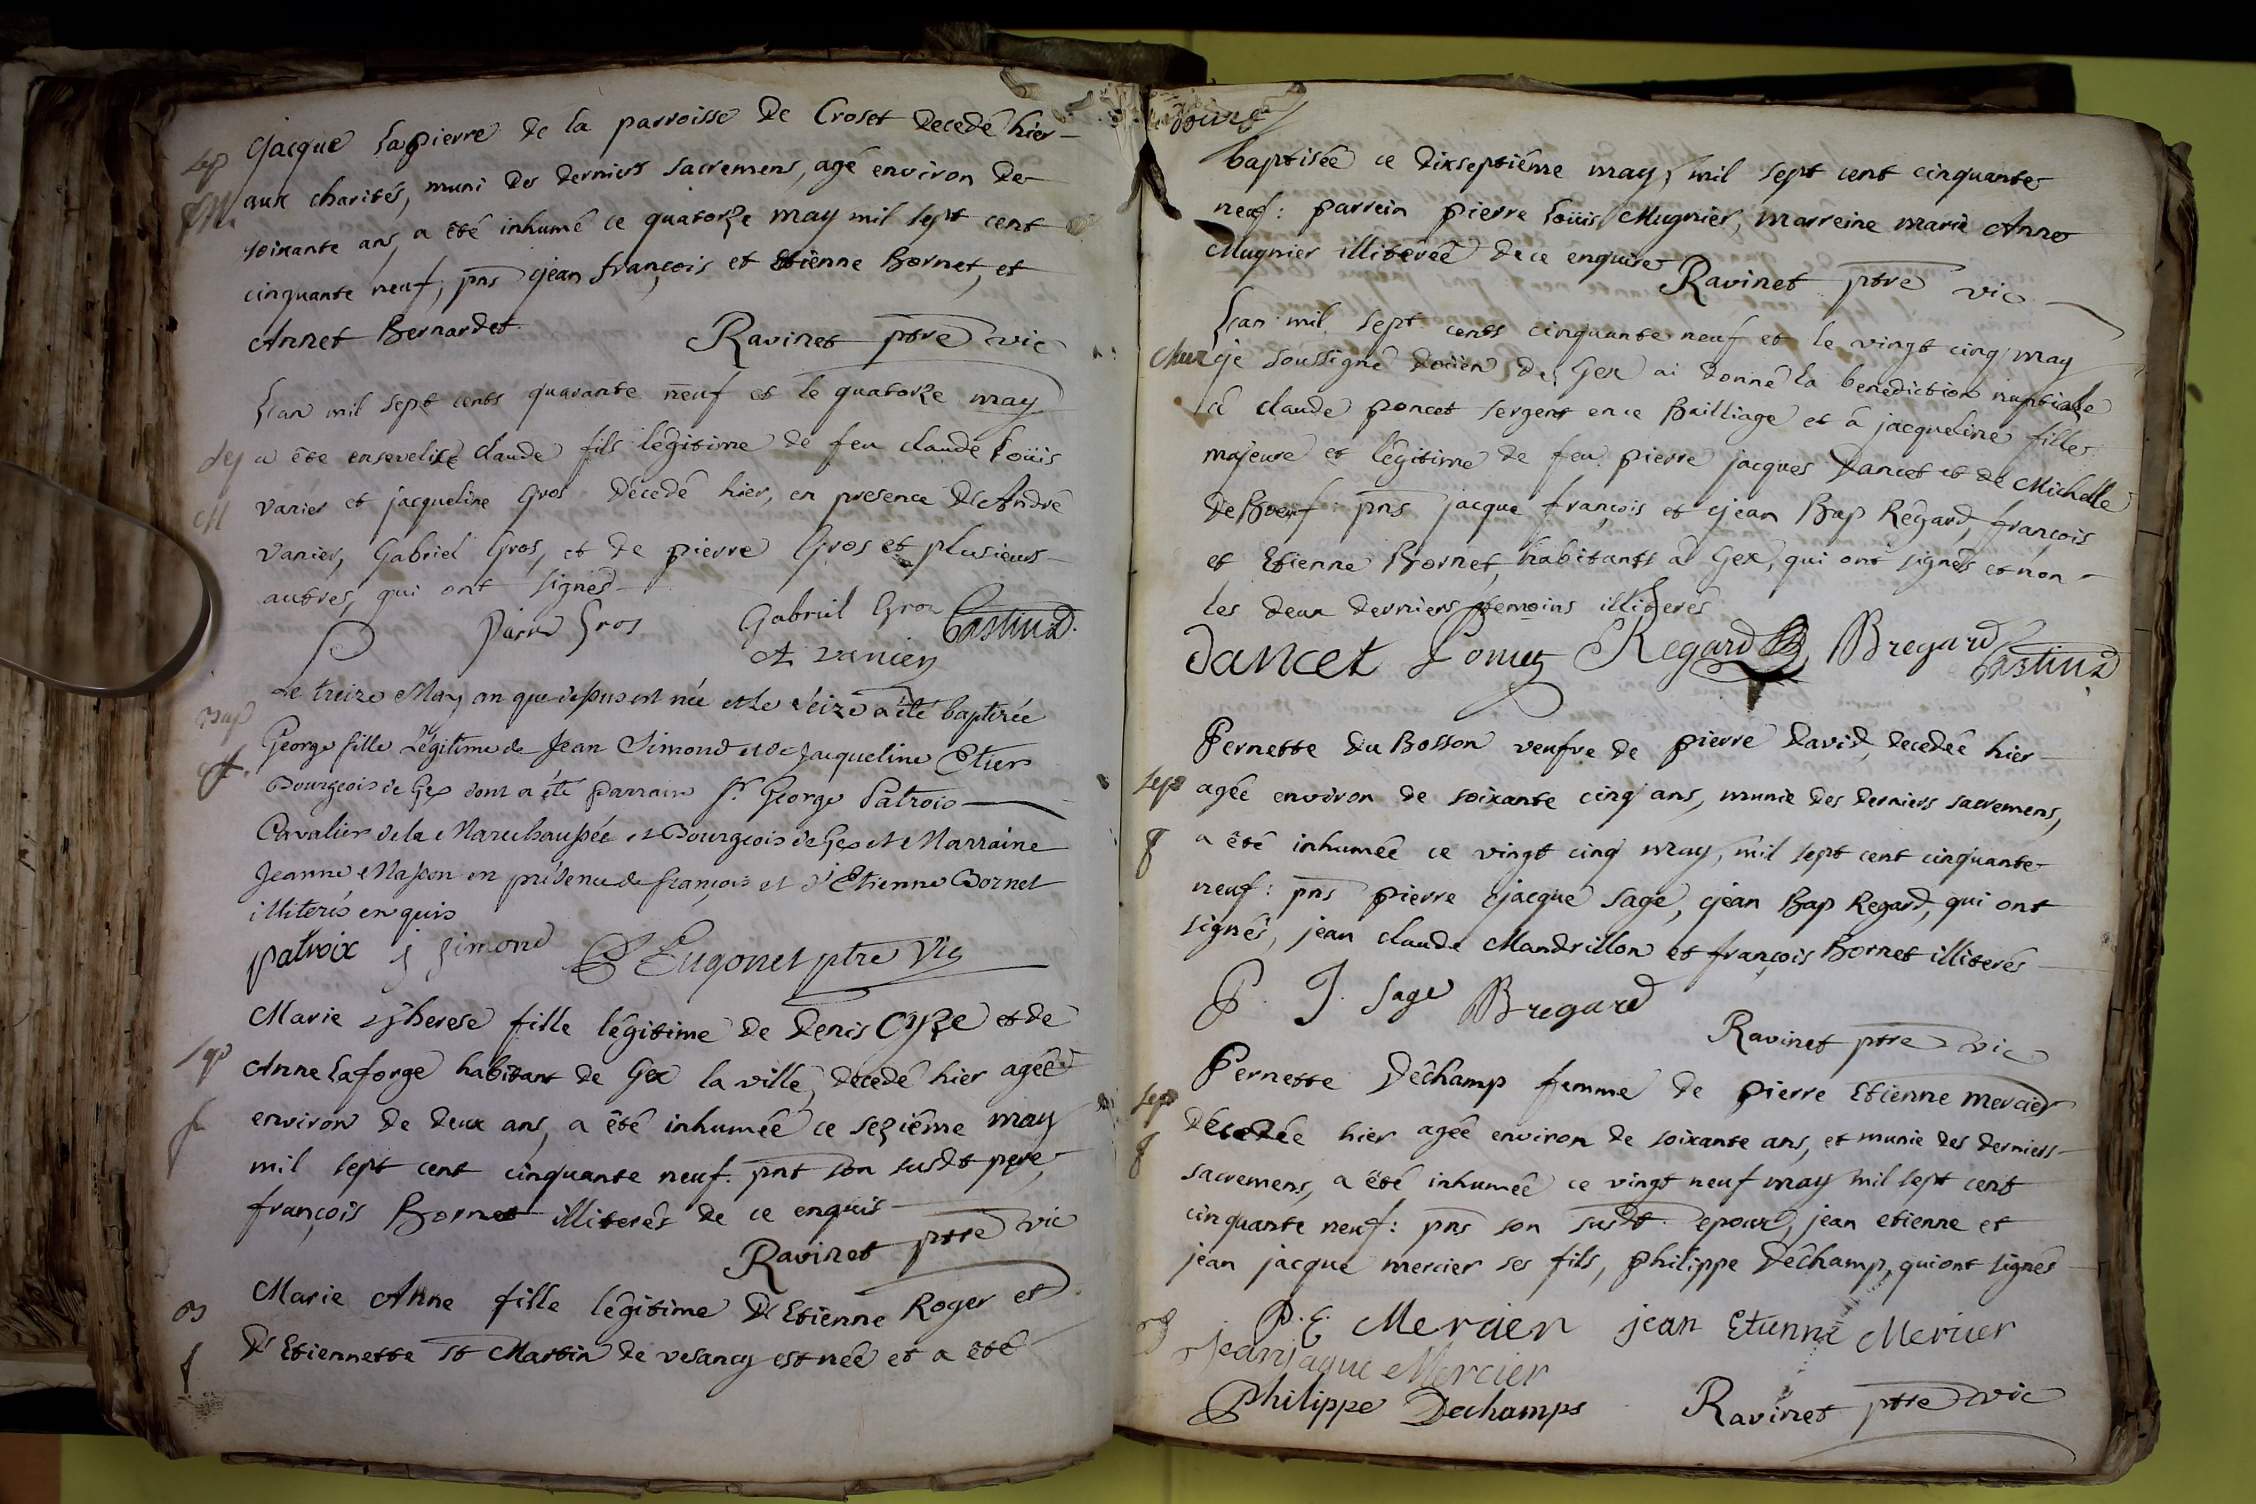 Sep Jacque Lapierre de la parroisse de Croset decedé hier
aux charités, muni des derniers sacremens, agé environ de
soixante ans, a été inhumé ce quatorze may mil sept cent
cinquante neuf; pns jean françois et Etienne Bornet, et
Annet Bernardet. Ravinet ptre vic
L'an mil sept cents quarante neuf et le quatorze may
a éte enseveli claude fils légitime de feu claude Loüis
M vanier et jacqueline Gros décedé hier, en presence d'André
vanier, Gabriel Gros, et de pierre Gros et plusieurs
autres, qui ont signés
Pierre Gros Gabriel Gros Castin
A vanier
Le treize May an que dessus est née et le seize a été baptisée
Bap George fille Légitime de Jean Simond et de Jacqueline Etier
f. Bourgeois de Gex dont a été Parrain Sr. George Patrois
Cavalier de la Marechaussée et Bourgeois de Gex et Marraine
Jeanne Masson en présence de françois et d'Etienne Bornet
illiterés enquis
patroix j Simond Eugonet ptre Vic
Marie Therese fille légitime de denis Oyze et de
Sep Anne Laforge habitant de Gex la ville, décedé hier agéé
f environ de deux ans, a été inhuméé ce seziéme may
mil sept cent cinquante neuf. pnt son susdt pere,
françois Bornet illiterés de ce enquis
Ravinet ptre vic
B Marie Anne fille légitime d'Etienne Roger et
f d'Etiennette st Martin de vesancy est néé et a été
baptisée ce dixseptiéme may, mil sept cent cinquante
neuf: parrein pierre Loüis Mugnier, marreine marie Anne
Mugnier illiteréé de ce enquise Ravinet ptre vic
L'an mil sept cents cinquante neuf et le vingt cinq may
je soussigné doïen de Gex ai donné la benediction nuptiale
à claude poncet sergent en ce Bailliage et à jacqueline fille
majeure et légitime de feu pierre jacques Dancet et de Michelle
de Boeuf: pns jacque françois et jean Bap Régard, françois
et Etienne Bornet, habitants à Gex, qui ont signés et non
les deux derniers temoins illiterés
dancet Poncet Regard Bregard Castin
Pernette du Bosson veufve de pierre david, decedéé hier
Sep agée environ de soixante cinq ans, munie des derniers sacremens,
f a été inhumée ce vingt cinq may, mil sept cent cinquante
neuf: pns pierre jacque sage, jean Bap Regard, qui ont
signés, jean claude Mandrillon et françois Bornet illiterés
P. J. Sage Bregard
Ravinet ptre vic
Pernette Déchamp femme de pierre Etienne mercier
Sep décedée hier agéé environ de soixante ans, et munie des derniers
f sacremens, a été inhumée ce vingt neuf may mil sept cent
cinquante neuf: pns son susdt epoux, jean etienne et
jean jacque mercier ses fils, philippe Déchamp, qui ont signés
P. E. Mercier jean Etienne Mercier
jean jaque Mercier
Philippe Dechamps Ravinet ptre vic